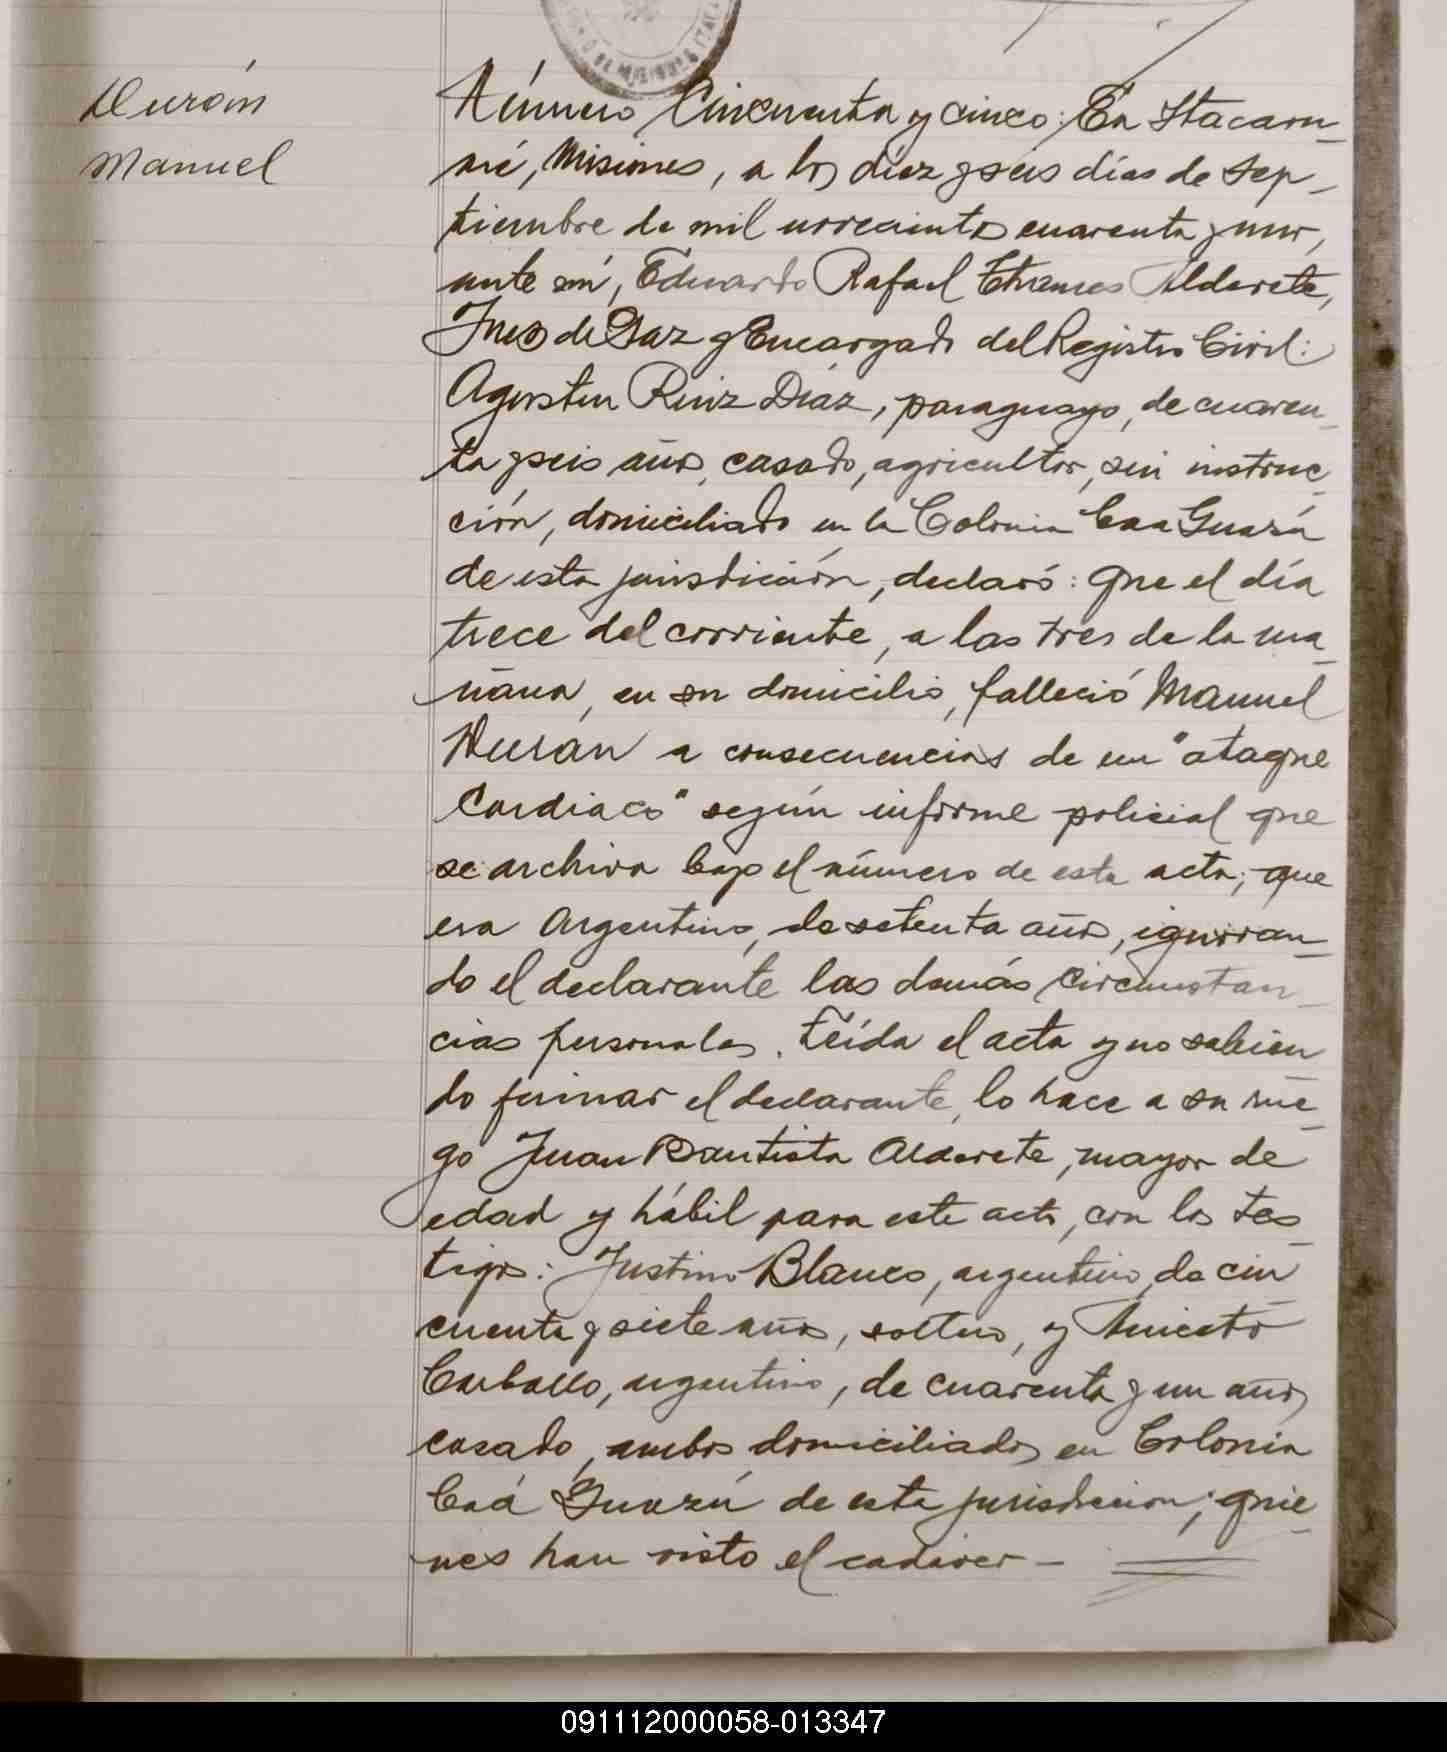 Durán
Manuel
Número Cincuenta y cinco: En Itacaru-
aré, Misiones, a los diez y seis días de sep-
tiembre de mil novecientos cuarenta y uno,
ante mí, Eduardo Rafael Thames Alderete,
Juez de Paz y Encargado del Registro Civil:
Agustin Ruiz Díaz, paraguayo, de cuaren-
ta y seis años, casado, agricultor, sin instruc-
ción, domiciliado en la Colonia Caa Guazú
de esta jurisdicción, declaró: que el día
trece del corriente, a las tres de la ma-
ñana, en su domicilio, falleció Manuel
Duran a consecuencias de un "ataque
Cardiaco" según informe policial que
se archiva bajo el número de esta acta; que
era Argentino, de setenta años, ignoran-
do el declarante las demás circunstan-
cias personales. Leída el acta y no sabien
do firmar el declarante, lo hace a su rue-
go Juan Bautista Alderete, mayor de
edad y hábil para este acto, con los tes-
tigos: Justino Blanco, argentino, de cin-
cuenta y siete años, soltero, y Aniceto
Carballo, argentino, de cuarenta y un años,
casado, ambos domiciliados en Colonia
Caá Guazú de esta jurisdiccion; quie-
nes han visto el cadáver —
091112000058-013347